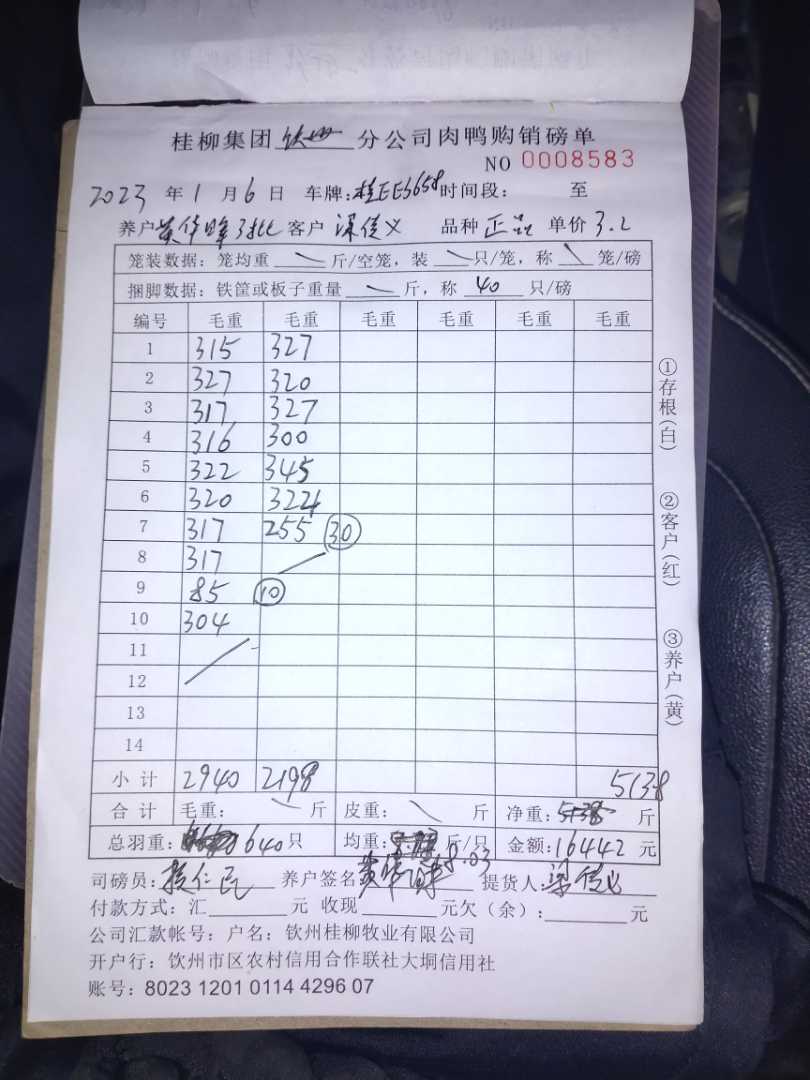 桂柳集团 钦州 分公司肉鸭购销磅单
NO 0008583
2023 年 1 月 6 日 车牌:桂EE3658 时间段: 至
养户 黄华峰 3批 客户 梁传义 品种 正品 单价 3.2
笼装数据:笼均重 \ 斤/空笼,装 \ 只/笼,称 \ 笼/磅
捆脚数据:铁筐或板子重量 \ 斤,称 40 只/磅
编号 毛重 毛重 毛重 毛重 毛重 毛重
1 315 327
2 327 320
3 317 327
4 316 300
5 322 345
6 320 324
7 317 255 30
8 317
9 85 10
10 304
11
12
13
14
小计 2940 2198 5138
合计 毛重: \ 斤 皮重: \ 斤 净重:5138 斤
总羽重: 640只 均重: 8.03 斤/只 金额:16442 元
司磅员: 仁民 养户签名 黄华峰 提货人:梁传义
付款方式:汇 元 收现 元欠(余): 元
公司汇款帐号:户名:钦州桂柳牧业有限公司
开户行:钦州市区农村信用合作联社大垌信用社
账号:8023 1201 0114 4296 07
①存根(白)
②客户(红)
③养户(黄)